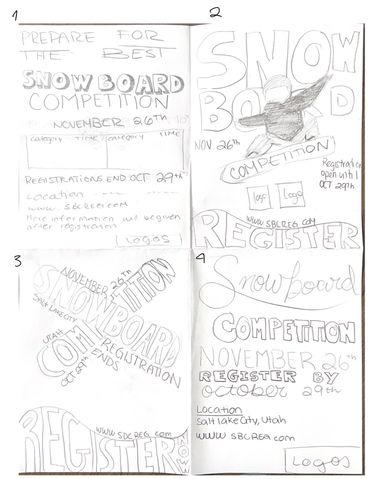 1
PREPARE FOR
THE BEST
SNOWBOARD
COMPETITION
NOVEMBER 26th
category time category time
REGISTRATIONS END OCT 29th
Location
www.sbcreg.com
More information will be given
after registration
LOGOS
2
SNOW
BOARD
NOV 26th
COMPETITION
Registration
open until
OCT 29th
logo Logo
www.SBCREG.COM
REGISTER
3
NOVEMBER 26th
SNOWBOARD
COMPETITION
Salt Lake City
Utah
REGISTRATION
ENDS
OCT 29th
www.SBCREG.com
REGISTER
NOW
4
Snowboard
COMPETITION
NOVEMBER 26th
REGISTER BY
October 29th
Location
Salt lake City, Utah
www.SBCREG.com
LOGOS